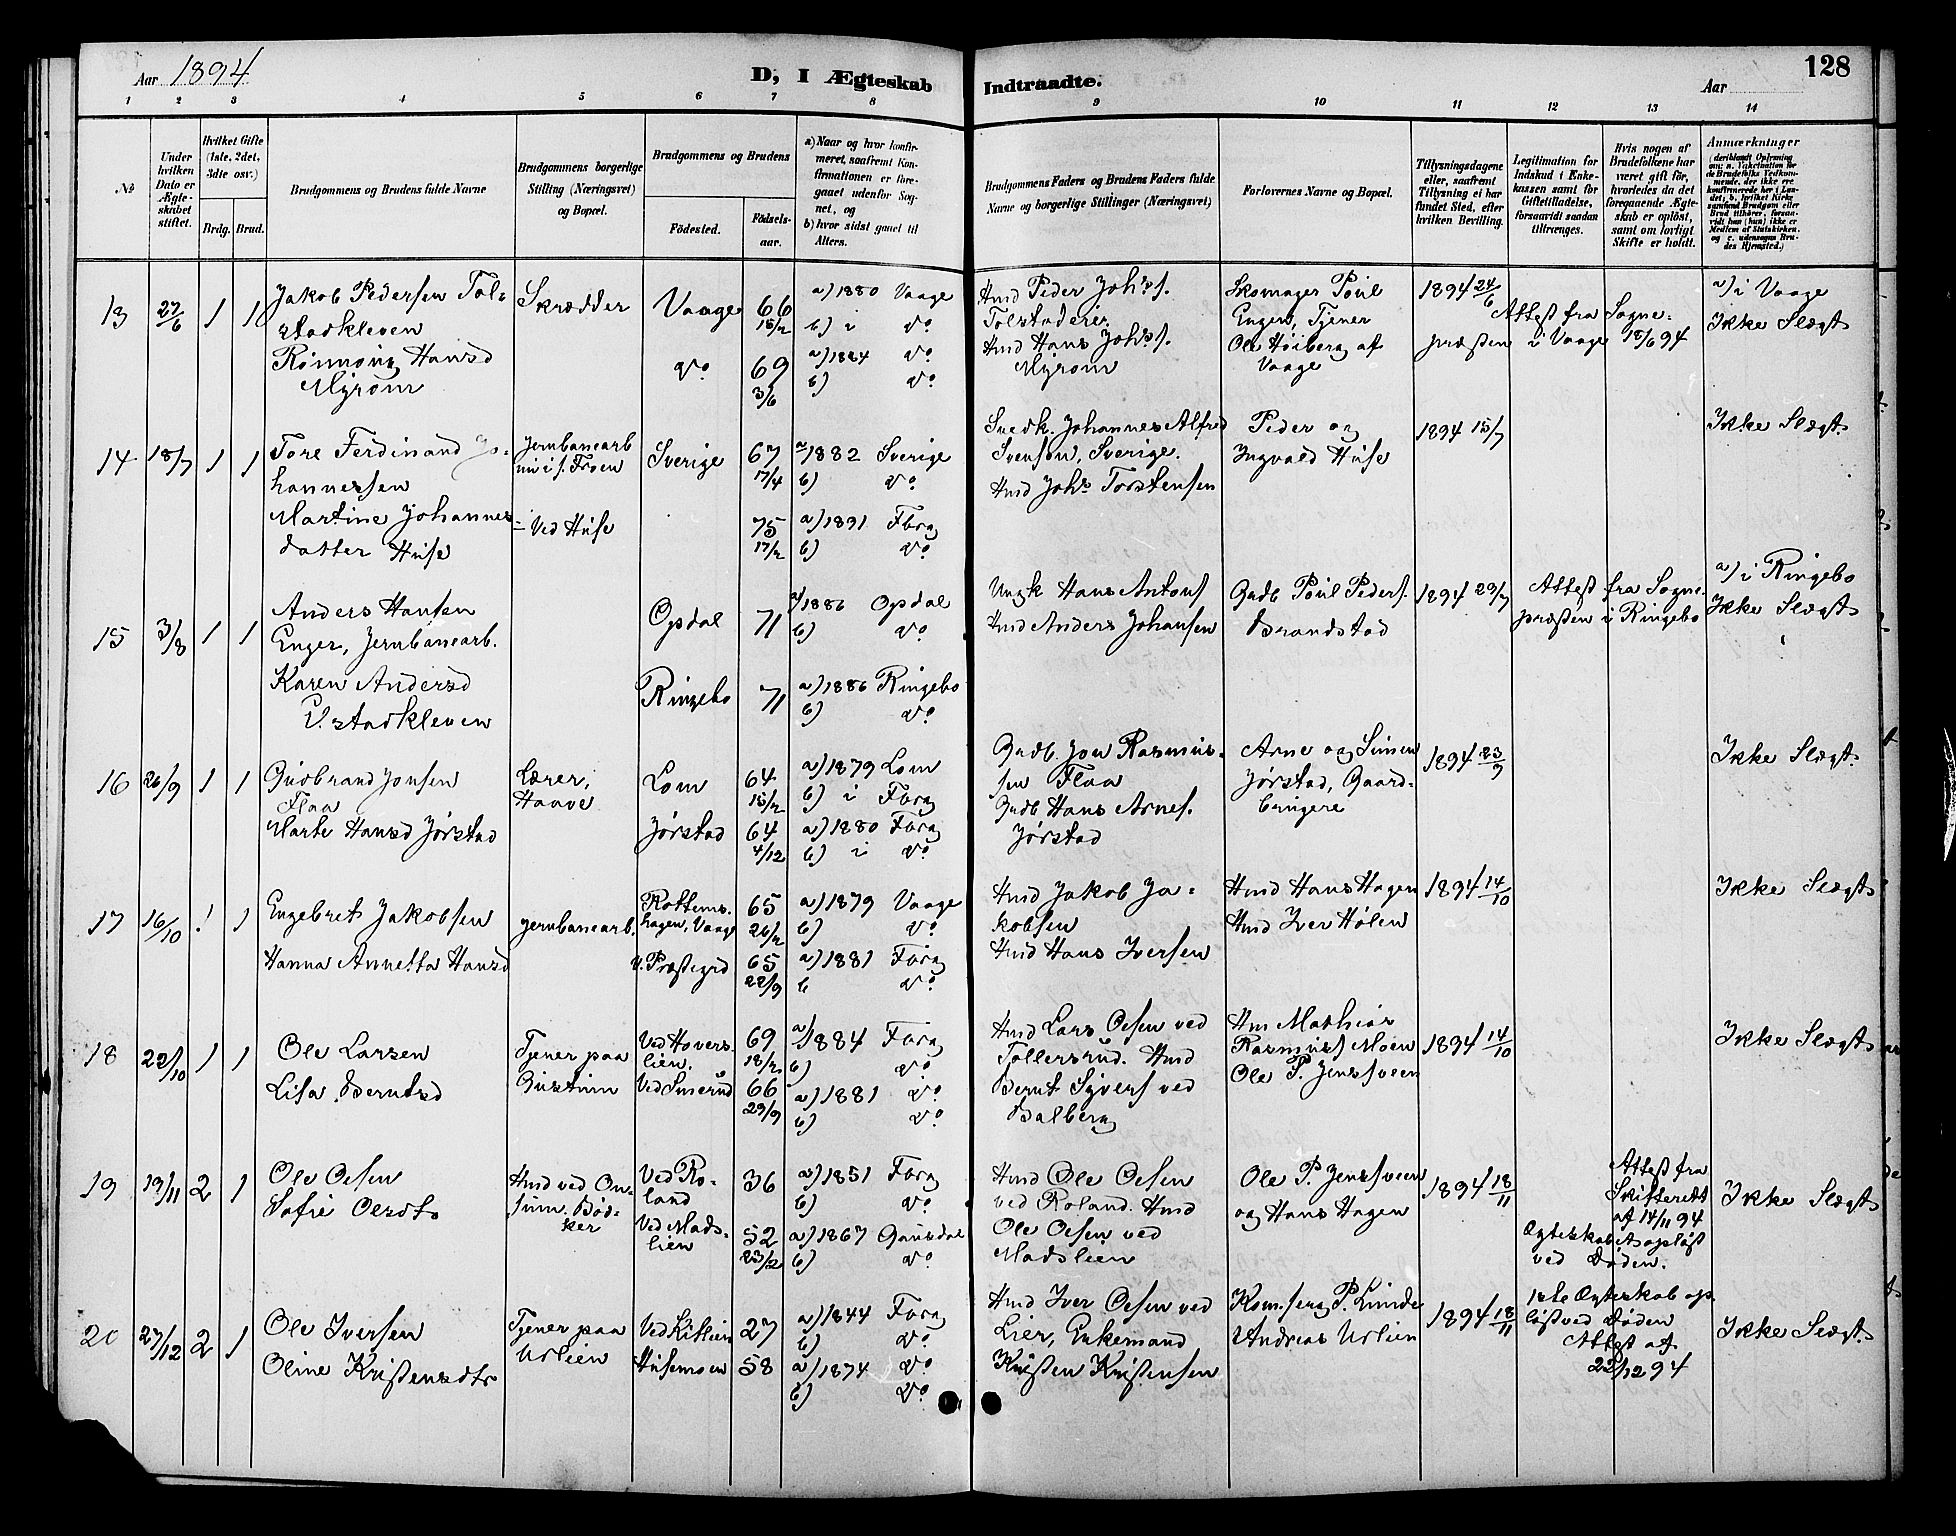 Aar 1894
D, I Ægteskab
Indtraadte.
Aar
128
1 2 3 4 5 6 7 8 9 10 11 12 13 14
No
Under hvilken Dato er Ægteskabet stiftet.
Hvilket Gifte (1ste, 2det, 3die osv.)
Brdg. Brud.
Brudgommens og Brudens fulde Navne
Brudgommens borgerlige Stilling (Næringsvet) og Bopæl.
Brudgommens og Brudens
Födested.
Födsels-aar.
a) Naar og hvor konfirmeret, saafremt Konfirmationen er foregaaet udenfor Sognet, og
b) hvor sidst gaaet til Alters.
Brudgommens Faders og Brudens Faders fulde Navne og borgerlige Stillinger (Næringsvet)
Forlovernes Navne og Bopæl.
Tillysningsdagene eller, saafremt Tillysning ei har fundet Sted, efter hvilken Bevilling.
Legitimation for Indskud i Enkekassen samt for Giftetilladelse, forsaavidt saadan tiltrænges.
Hvis nogen af Brudefolkene har været gift för, hvorledes da det foregaaende Ægteskab er oplöst, samt om lovligt Skifte er holdt.
Anmærkninger
13 27/6 1 1 Jakob Pedersen Tolstadkleven
Skrædder Vaage 66 15/2 a) 1880 Vaage
b) i do
Rønnoug Hansd Myrom
do 69 3/6 a) 1884 do
b) do
Hmd Peder Johs. Tolstadeie
Hmd Hans Johs. Myrom
Skomager Poul Enger, Tjener Ole Høiberg af Vaage
1894 24/6
Attest fra Sognepræsten i Vaage 18/6 94
a) i Vaage
Ikke Slægt
14 18/7 1 1 Tore Ferdinand Johannessen
Jernbanearb Sverige 67 17/4 a 1882 Sverige
b) do
Martine Johannesdatter Huse
Ved Huse 75 17/2 a) 1891 Fbrg
b) do
Svedk. Johannes Alfred Svenson, Sverige.
Hmd Johs Torstensen
Peder og Ingvald Huse
1894 15/7
Ikke Slægt.
15 3/8 1 1 Anders Hansen Enger, Jernbanearb.
Opdal 71 a) 1886 Opdal
b) do
Karen Andersd
V. stadkleven
Ringebo 71 a) 1886 Ringebo
b) do
Ungk Hans Antons
Hmd Anders Johansen
Gadb Poul Peders. Brandstad
1894 29/7
Attest fra Sognepræsten i Ringebo
a) i Ringebo
Ikke Slægt
16 26/9 1 1 Gudbrand Jonsen Flaa
Lærer, Haave Lom 64 15/2 a) 1879 Lom
b) i Fbrg
Marte Hansd Jørstad
Jørstad 64 4/12 a) 1880 Fbrg
b) i do
Gadb. Jon Rasmussen Flaa
Gadb Hans Arnes. Jørstad
Arne og Simen Jørstad, Gaardbrugere
1894 23/9
Ikke Slægt.
17 16/10 1 1 Engebret Jakobsen
Jernbanearb. Rottemshagen, Vaage 65 26/2 a) 1879 Vaage
b) do
Hanna Annetta Hansd
V. Præstegrd 65 22/9 a) 1881 Fbrg
b do
Hmd Jakob Jakobsen
Hmd Hans Iversen
Hmd Hans Hagen
Hmd Iver Hølen
1894 14/10
Ikke Slægt
18 22/10 1 1 Ole Larsen
Tjener paa Gustum Ved Hoverslien. 69 18/2 a) 1884 Fbrg
b) do
Lisa Berntsd
Ved Smerud 66 29/9 a) 1881 do
b) do
Hmd Lars Olsen ved Tollersrud. Hmd
Bernt Syvers ved Balberg
Hm Mathias Rasmuss Moen
Ole P. Jenssveen
1894 14/10
Ikke Slægt
19 19/11 2 1 Ole Olsen
Hmd ved Onsum. Bødker Ved Roland 36 a) 1851 Fbrg
b) do
Sofie Olsdt
Ved Madslien 52 23/2 a) 1867 Gausdal
b) do
Hmd Ole Olsen ved Roland. Hmd
Ole Olsen ved Madslien
Ole P. Jenssveen og Hans Hagen
1894 18/11
Attest fra Skifteret af 14/11 94
Ægteskabet opløst ved Døden.
Ikke Slægt
20 27/12 2 1 Ole Iversen
Tjener paa Urlien Ved Kitlien 27 a) 1844 Fbrg
b) do
Oline Kristensdtr
Husemoen 58 a) 1874 do
b) do
Hmd Iver Olsen ved Lier, Enkemand
Kristen Kristensen
Kom.serg P. Lunde
Andreas Urlien
1894 18/11
1ste Ægteskab opløst ved Døden
Attest af 22/12 94
Ikke Slægt.